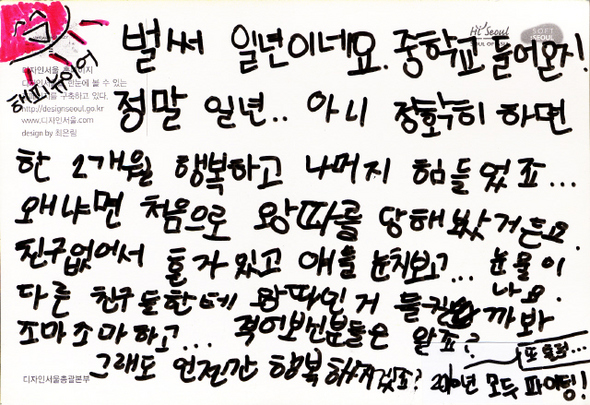 벌써 일년이네요. 중학교 들어온지!
해피뉴이어
디자인서울 홈페이지
한눈에 볼 수 있는
구축하고 있다.
http://designseoul.go.kr
www.디자인서울.com
design by 최은림
Hi Seoul
SOUL OF ASIA
SOFT SEOUL
정말 일년.. 아니 정확히 하면
한 2개월 행복하고 나머지 힘들었죠...
왜냐면 처음으로 왕따를 당해봤거든요.
친구없어서 혼자 있고 애들 눈치보고... 눈물이 나요.
다른 친구들한테 왕따인거 들킬까봐
조마조마하고... 적어보신분들은 알죠?
또 횡설...
그래도 언젠간 행복해지겠죠? 2010년 모두 파이팅!
디자인서울총괄본부